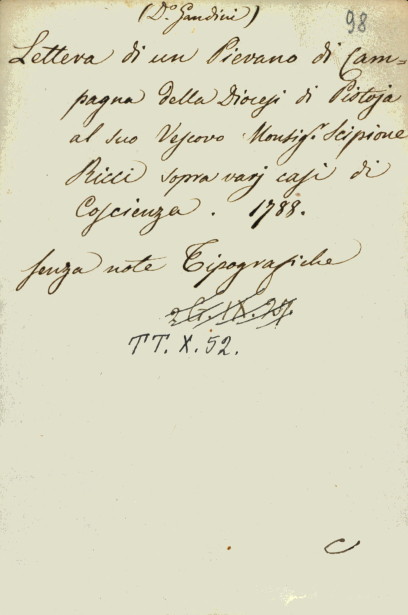 (D.º Gandini)
98
Lettera di un Pievano di Cam=
pagna della Diocesi di Pistoja
al suo Vescovo Monsig.r Scipione
Ricci sopra varj casi di
Coscienza. 1788.
senza note Tipografiche
TT. X. 52.
C